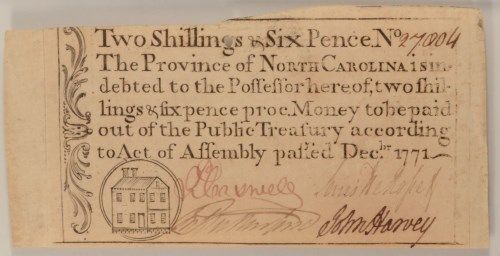 Two Shillings & Six Pence. No 27804
The Province of NORTH CAROLINA is in-
debted to the Poſſeſſor hereof, two ſhil-
lings & ſix pence proc. Money to be paid
out of the Public Treaſury according
to Act of Aſſembly paſſed Decbr. 1771
John Harvey